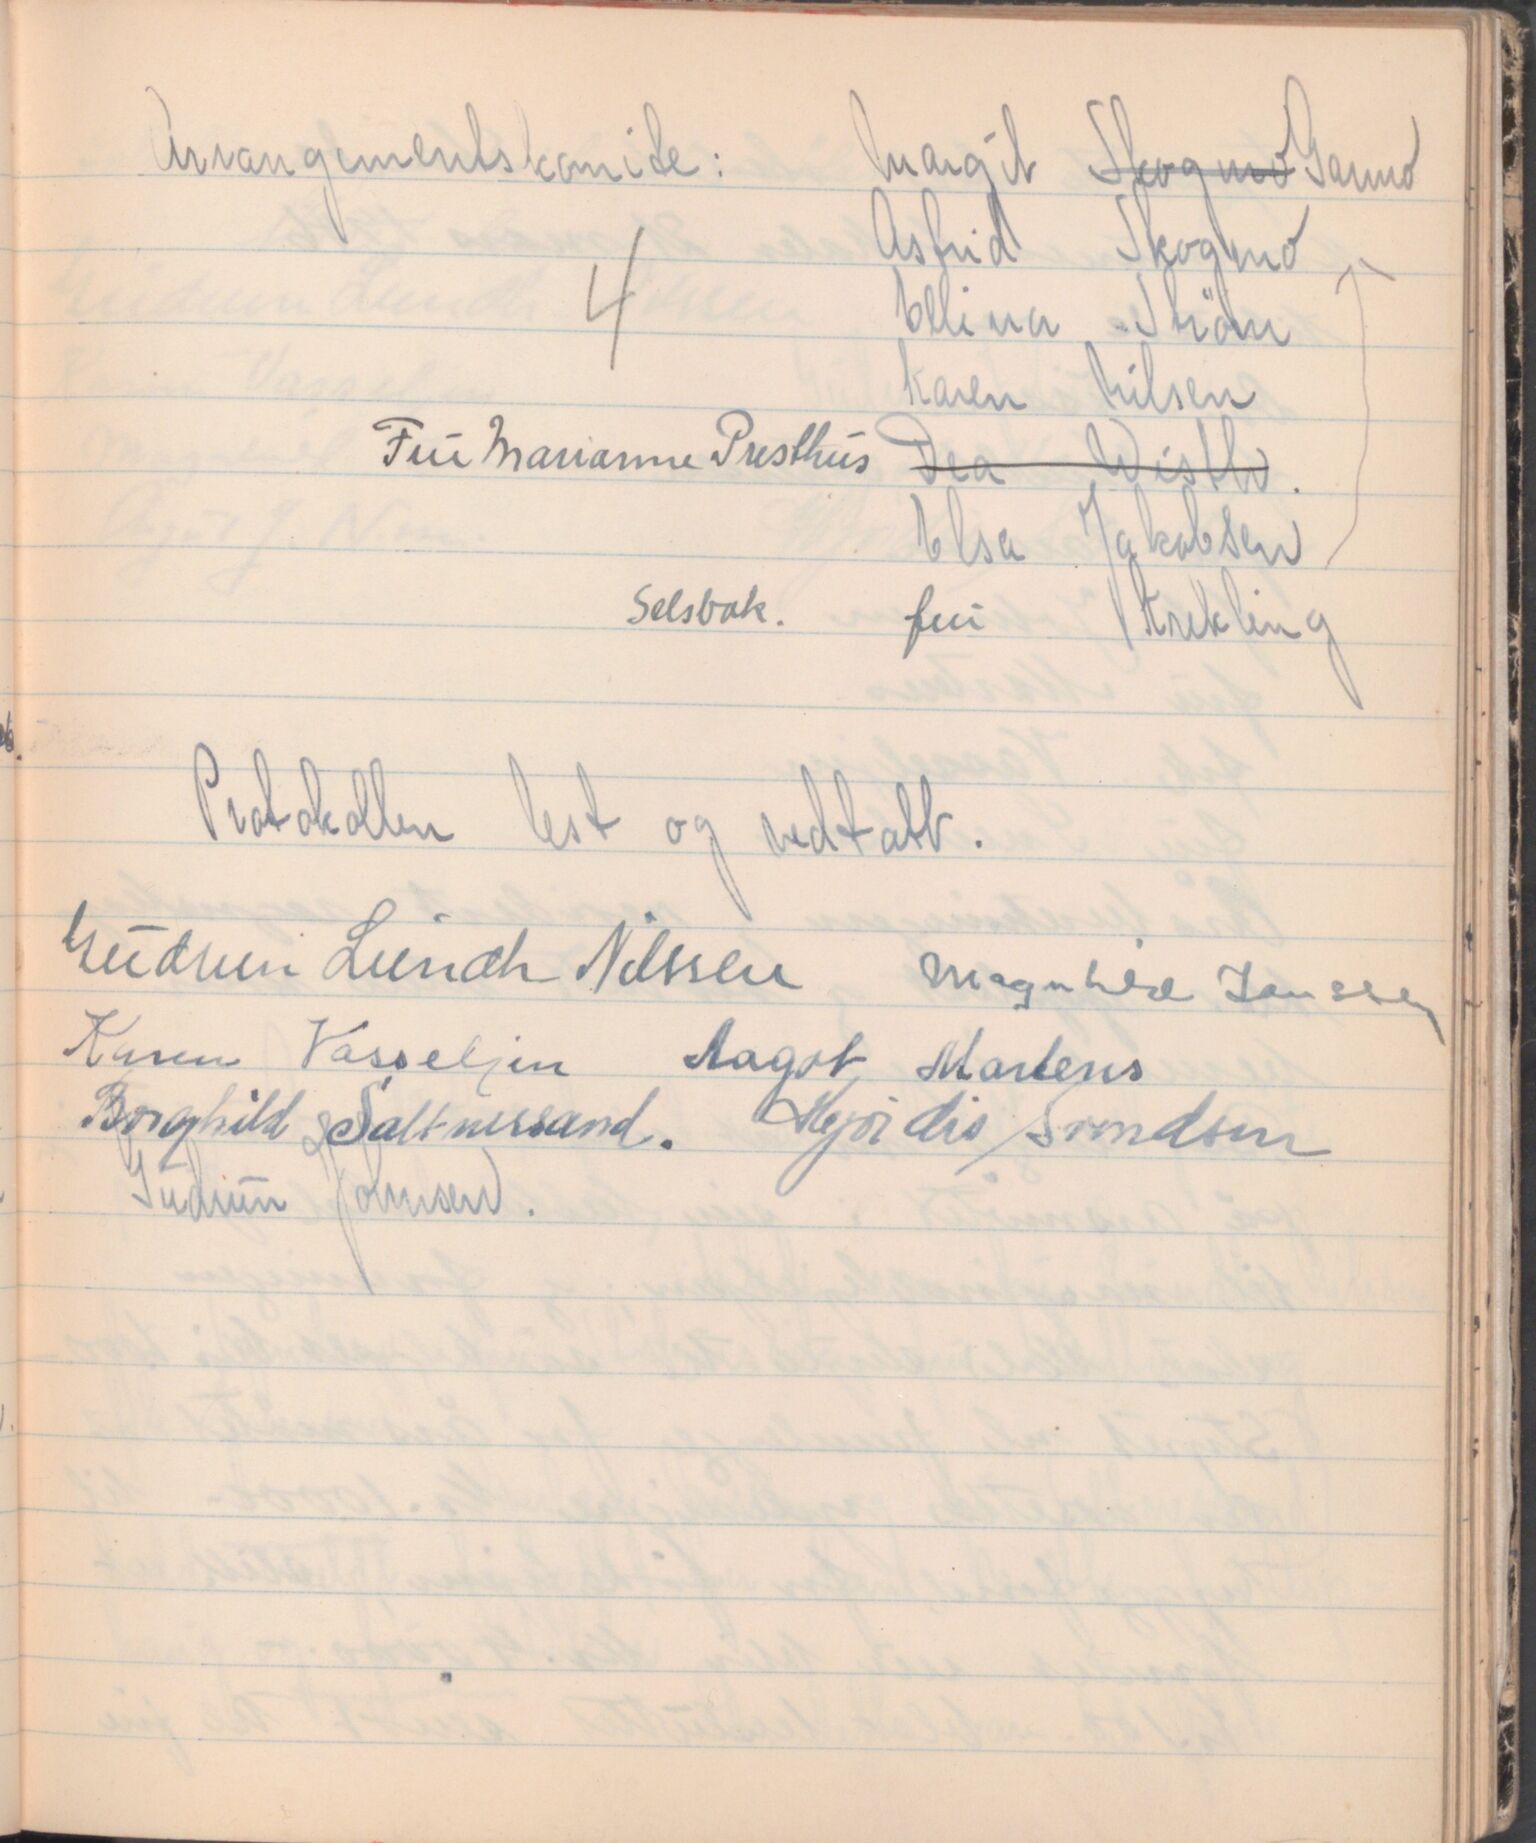 Arrangementskomite: Margit Skogmo Sanmo
Astrid Skogmo
4
Elina Ström
Karen Nilsen
Frü Marianne Presthüs Dea Wisth.
Elsa Jakobsen
Selsbak. frü Strekling
Protokollen lest og vedtatt.
Güdrun Lündh Nilssen Magnhild Janssen
Karen Vasseljen Aagot Martens
Borghild Saltnessand. Hjördis Svendsen
Güdrün Johnsen.